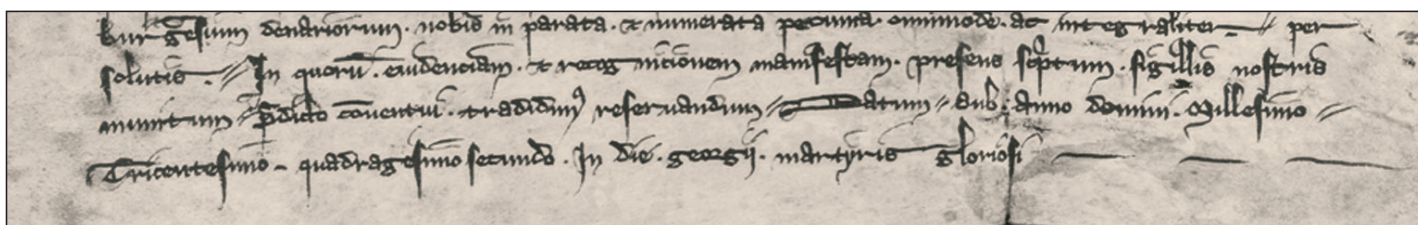 burgēsium denariorum · nobis in parata · et numerata pecunia · omnimode · ac integraliter — // per
solutis · // In quorū · euidenciam · et recognicionem manifestam · presens scͥptum · sigillis nostris
munitum // p̄dicto cōuentui · tradidimꝰ reseruandum // Datum // sub · anno domini · Millesimo //
Tricentesimo – quadragesimo secundo · In die · georgij · martyris gloriosi — — —